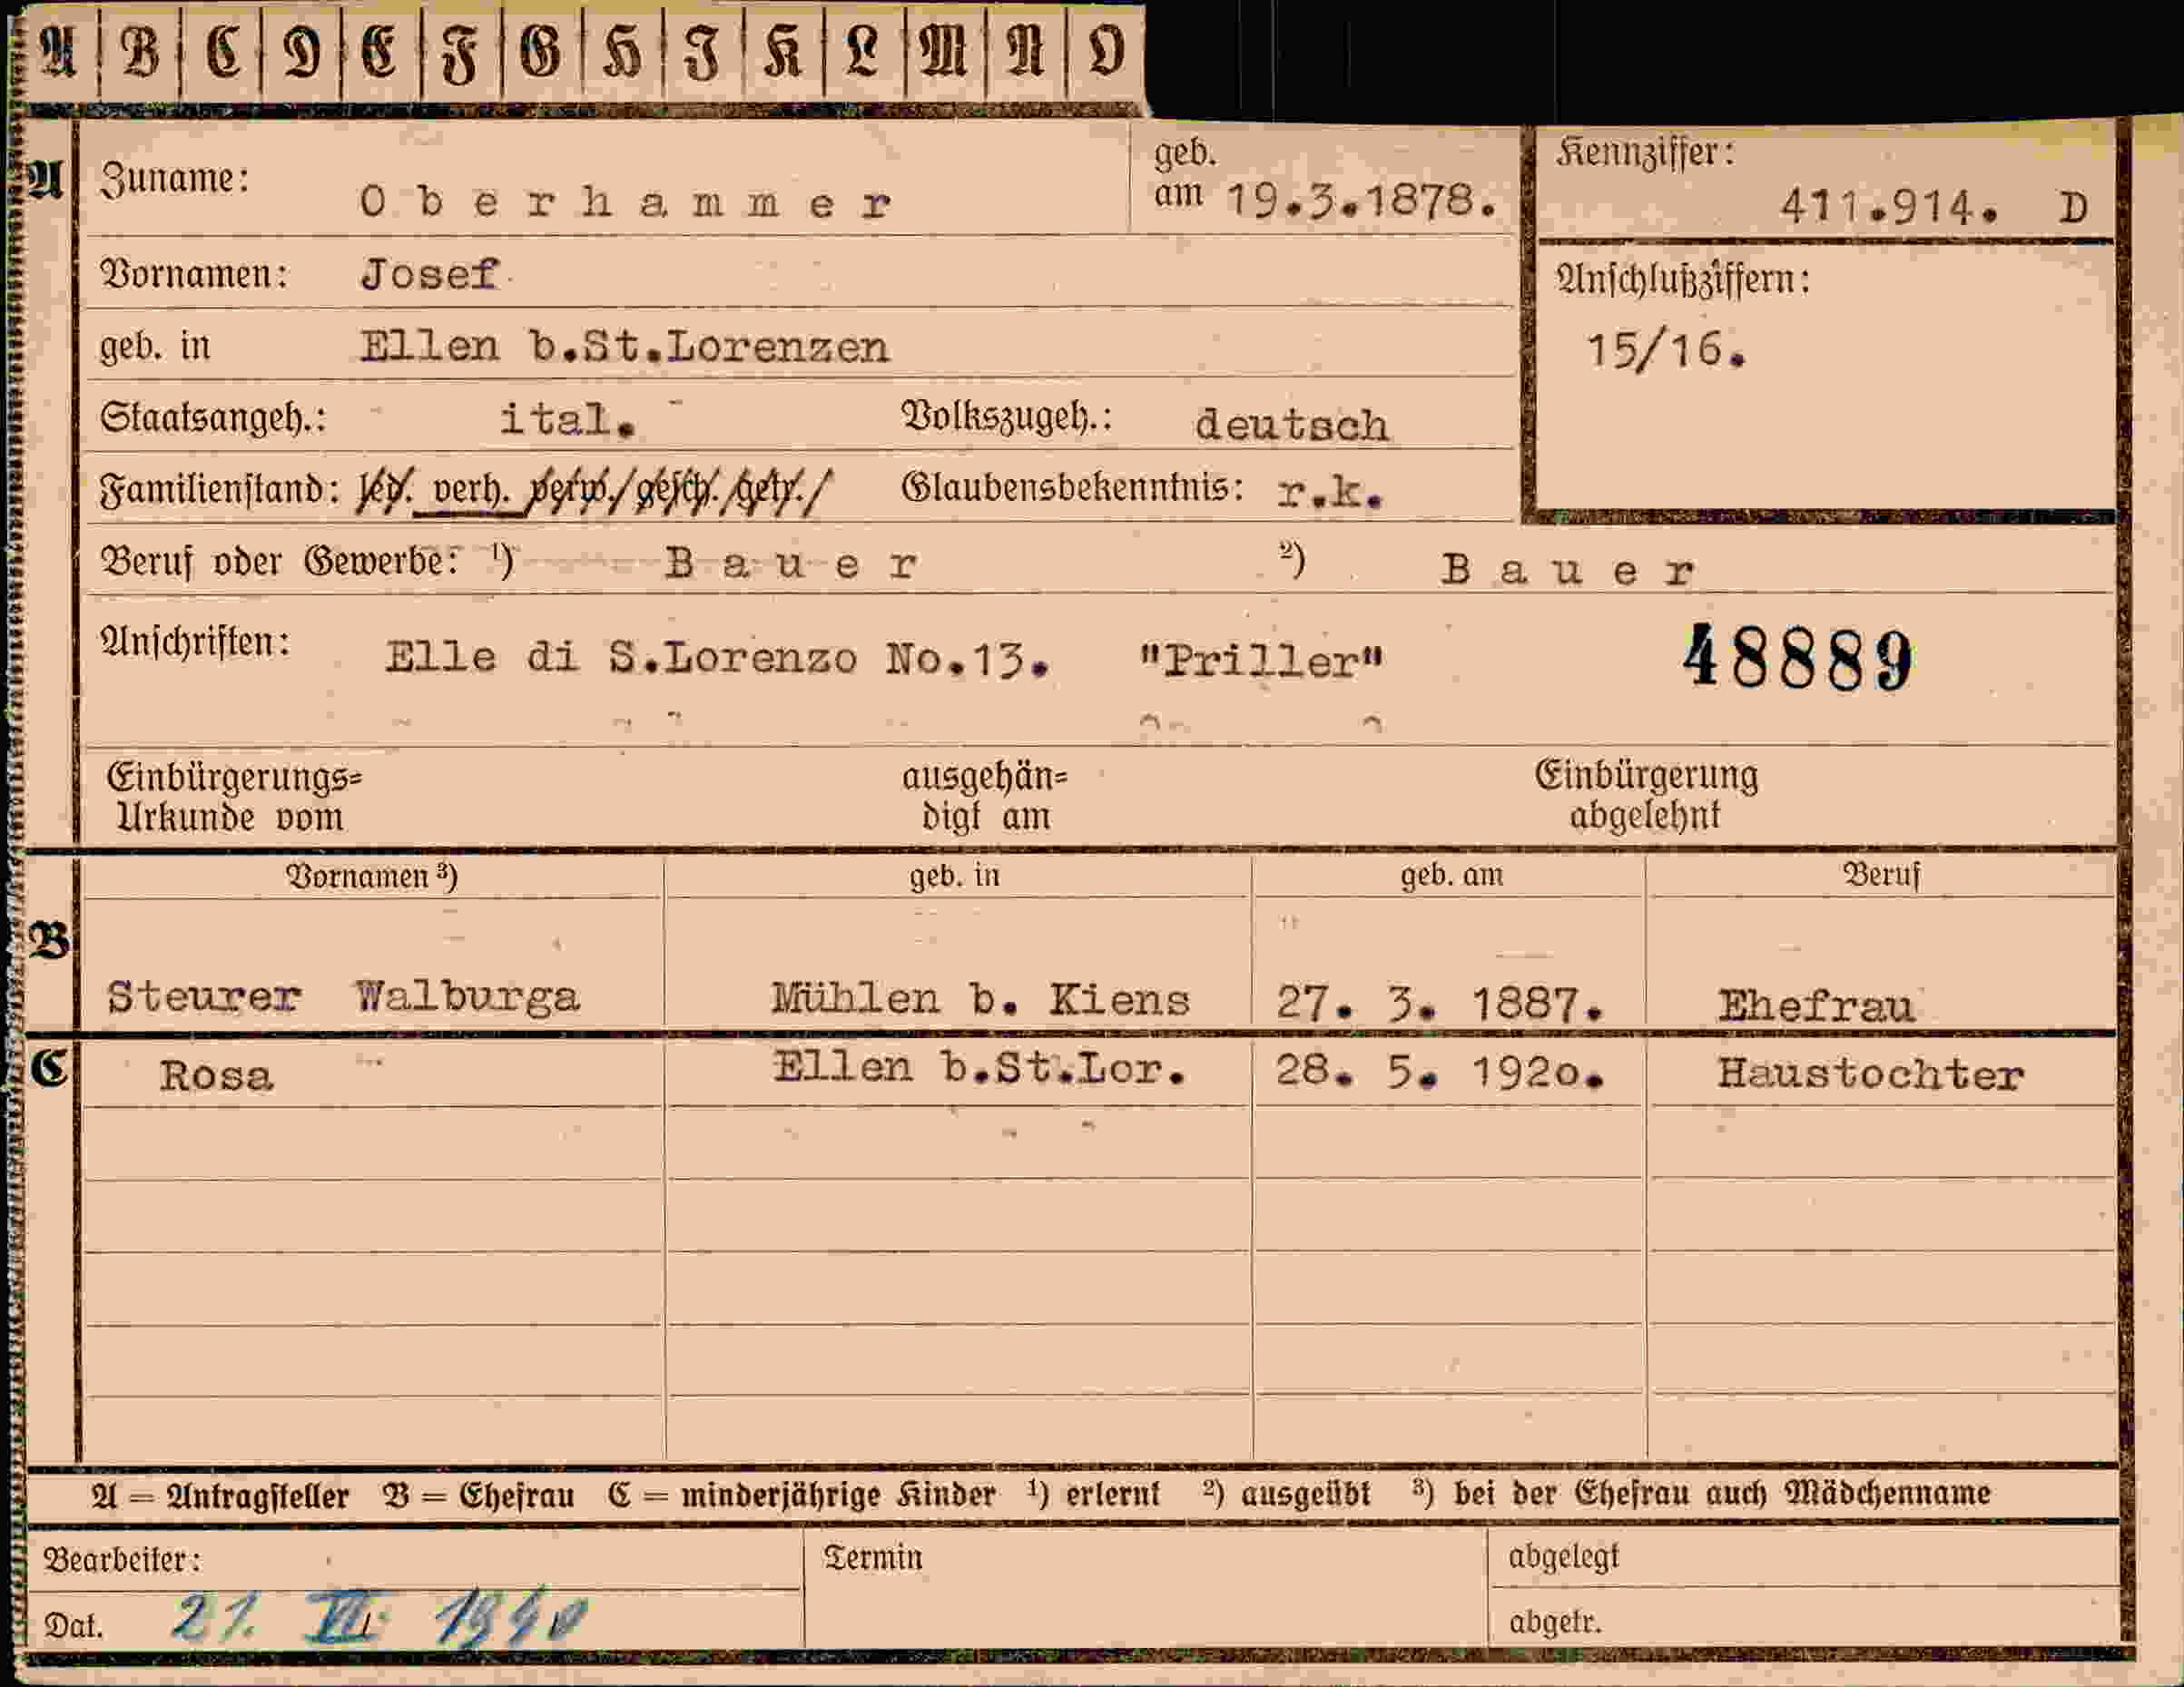 A B C D E F G H I K L M N O
A Zuname: Oberhammer geb. am 19.3.1878. Kennziffer: 411.914. D
Vornamen: Josef Anschlußziffern:
geb. in Ellen b.St.Lorenzen 15/16.
Staatsangeh.: ital. Volkszugeh.: deutsch
Familienstand: led. verh. verw./gesch./getr./ Glaubensbekenntnis: r.k.
Beruf oder Gewerbe: 1) Bauer 2) Bauer
Anschriften: Elle di S.Lorenzo No.13. "Priller" 48889
Einbürgerungs= ausgehän= Einbürgerung
Urkunde vom digt am abgelehnt
Vornamen 3) geb. in geb. am Beruf
B Steurer Walburga Mühlen b. Kiens 27. 3. 1887. Ehefrau
C Rosa Ellen b.St.Lor. 28. 5. 192o. Haustochter
A = Antragsteller B = Ehefrau C = minderjährige Kinder 1) erlernt 2) ausgeübt 3) bei der Ehefrau auch Mädchenname
Bearbeiter: Termin abgelegt
Dat. 21. 1940 abgetr.